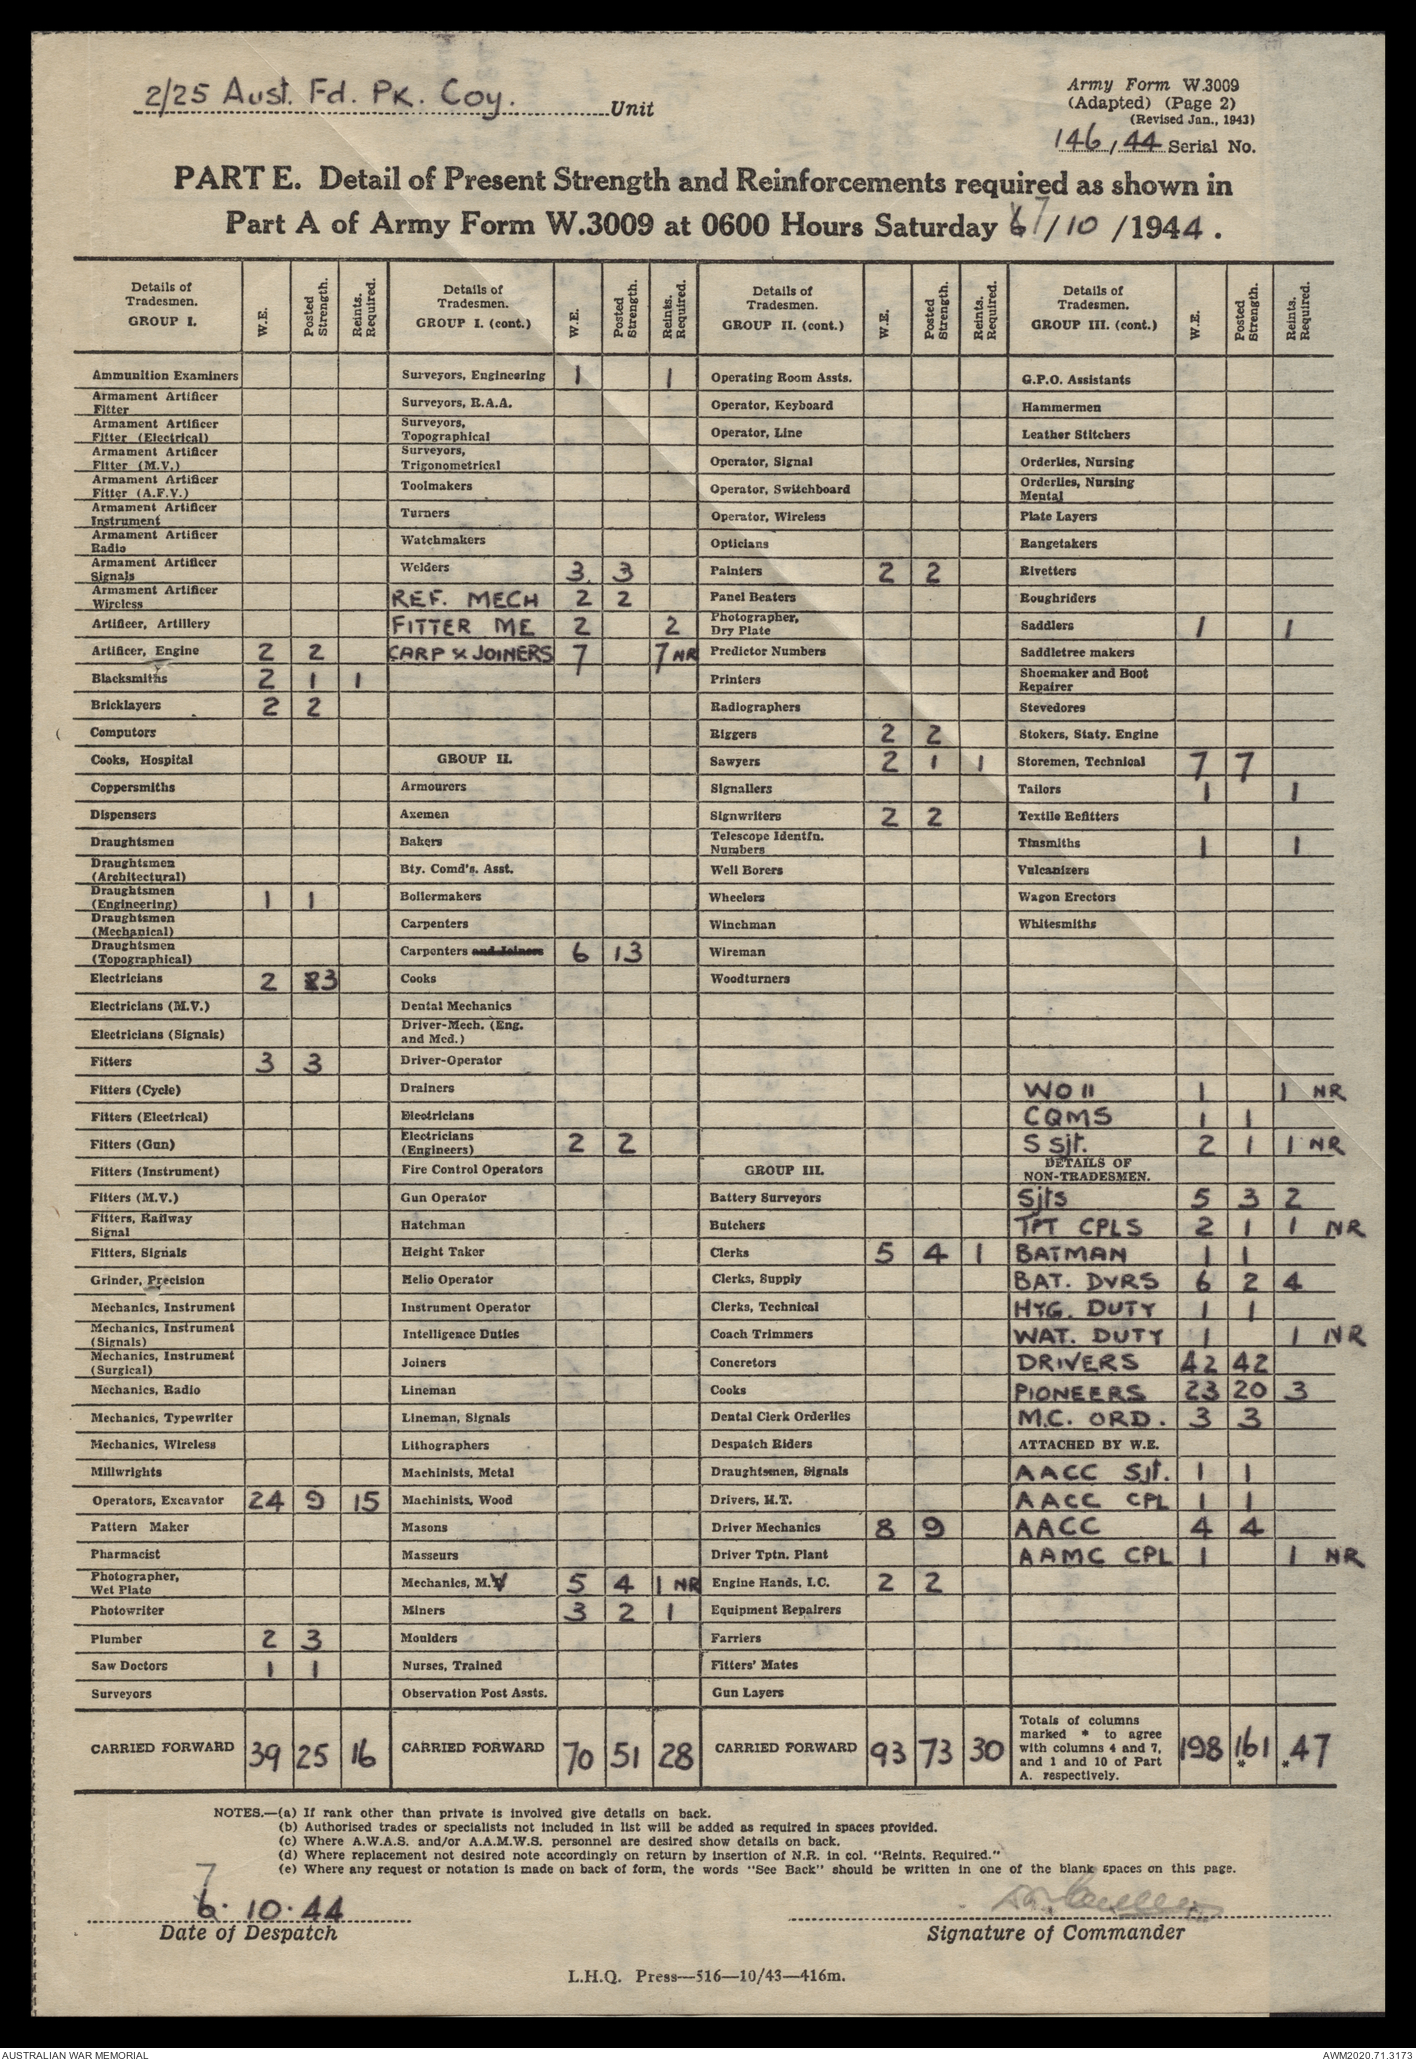 2/25 Aust. Fd. Pk. Coy. Unit
Army Form W.3009
(Adapted) (Page 2)
(Revised Jan., 1943)
146/44 Serial No.
PART E. Detail of Present Strength and Reinforcements required as shown in
Part A of Army Form W.3009 at 0600 Hours Saturday 7/10/1944.
Details of Tradesmen. GROUP I. W.E. Posted Strength. Reints. Required.
Ammunition Examiners
Armament Artificer Fitter
Armament Artificer Fitter (Electrical)
Armament Artificer Fitter (M.V.)
Armament Artificer Fitter (A.F.V.)
Armament Artificer Instrument
Armament Artificer Radio
Armament Artificer Signals
Armament Artificer Wireless
Artificer, Artillery
Artificer, Engine 2 2
Blacksmiths 2 1 1
Bricklayers 2 2
Computors
Cooks, Hospital
Coppersmiths
Dispensers
Draughtsmen
Draughtsmen (Architectural)
Draughtsmen (Engineering) 1 1
Draughtsmen (Mechanical)
Draughtsmen (Topographical)
Electricians 2 3
Electricians (M.V.)
Electricians (Signals)
Fitters 3 3
Fitters (Cycle)
Fitters (Electrical)
Fitters (Gun)
Fitters (Instrument)
Fitters (M.V.)
Fitters, Railway Signal
Fitters, Signals
Grinder, Precision
Mechanics, Instrument
Mechanics, Instrument (Signals)
Mechanics, Instrument (Surgical)
Mechanics, Radio
Mechanics, Typewriter
Mechanics, Wireless
Millwrights
Operators, Excavator 24 9 15
Pattern Maker
Pharmacist
Photographer, Wet Plate
Photowriter
Plumber 2 3
Saw Doctors 1 1
Surveyors
CARRIED FORWARD 39 25 16
Details of Tradesmen. GROUP I. (cont.) W.E. Posted Strength. Reints. Required.
Surveyors, Engineering 1 1
Surveyors, R.A.A.
Surveyors, Topographical
Surveyors, Trigonometrical
Toolmakers
Turners
Watchmakers
Welders 3. 3
REF. MECH 2 2
FITTER ME 2 2
CARP & JOINERS 7 7 NR
GROUP II.
Armourers
Axemen
Bakers
Bty. Comd's. Asst.
Boilermakers
Carpenters
Carpenters and Joiners 6 13
Cooks
Dental Mechanics
Driver-Mech. (Eng. and Med.)
Driver-Operator
Drainers
Electricians
Electricians (Engineers) 2 2
Fire Control Operators
Gun Operator
Hatchman
Height Taker
Helio Operator
Instrument Operator
Intelligence Duties
Joiners
Lineman
Lineman, Signals
Lithographers
Machinists, Metal
Machinists, Wood
Masons
Masseurs
Mechanics, M.V 5 4 1 NR
Miners 3 2 1
Moulders
Nurses, Trained
Observation Post Assts.
CARRIED FORWARD 70 51 28
Details of Tradesmen. GROUP II. (cont.) W.E. Posted Strength. Reints. Required.
Operating Room Assts.
Operator, Keyboard
Operator, Line
Operator, Signal
Operator, Switchboard
Operator, Wireless
Opticians
Painters 2 2
Panel Beaters
Photographer, Dry Plate
Predictor Numbers
Printers
Radiographers
Riggers 2 2
Sawyers 2 1 1
Signallers
Signwriters 2 2
Telescope Identfn. Numbers
Well Borers
Wheelers
Winchman
Wireman
Woodturners
GROUP III.
Battery Surveyors
Butchers
Clerks 5 4 1
Clerks, Supply
Clerks, Technical
Coach Trimmers
Concretors
Cooks
Dental Clerk Orderlies
Despatch Riders
Draughtsmen, Signals
Drivers, H.T.
Driver Mechanics 8 9
Driver Tptn. Plant
Engine Hands, I.C. 2 2
Equipment Repairers
Farriers
Fitters' Mates
Gun Layers
CARRIED FORWARD 93 73 30
Details of Tradesmen. GROUP III. (cont.) W.E. Posted Strength. Reints. Required.
G.P.O. Assistants
Hammermen
Leather Stitchers
Orderlies, Nursing
Orderlies, Nursing Mental
Plate Layers
Rangetakers
Rivetters
Roughriders
Saddlers 1 1
Saddletree makers
Shoemaker and Boot Repairer
Stevedores
Stokers, Staty. Engine
Storemen, Technical 7 7
Tailors 1 1
Textile Refitters
Tinsmiths 1 1
Vulcanizers
Wagon Erectors
Whitesmiths
WO II 1 1 NR
CQMS 1 1
S Sjt. 2 1 1 NR
DETAILS OF NON-TRADESMEN.
Sjts 5 3 2
TPT CPLS 2 1 1 NR
BATMAN 1 1
BAT. DVRS 6 2 4
HYG. DUTY 1 1
WAT. DUTY 1 1 NR
DRIVERS 42 42
PIONEERS 23 20 3
M.C. ORD. 3 3
ATTACHED BY W.E.
AACC Sjt. 1 1
AACC CPL 1 1
AACC 4 4
AAMC CPL 1 1 NR
Totals of columns marked * to agree with columns 4 and 7, and 1 and 10 of Part A. respectively. 198 *161 *47
NOTES.—(a) If rank other than private is involved give details on back.
(b) Authorised trades or specialists not included in list will be added as required in spaces provided.
(c) Where A.W.A.S. and/or A.A.M.W.S. personnel are desired show details on back.
(d) Where replacement not desired note accordingly on return by insertion of N.R. in col. "Reints. Required."
(e) Where any request or notation is made on back of form, the words "See Back" should be written in one of the blank spaces on this page.
7
6. 10. 44
Date of Despatch
Signature of Commander
L.H.Q. Press—516—10/43—416m.
AUSTRALIAN WAR MEMORIAL
AWM2020.71.3173